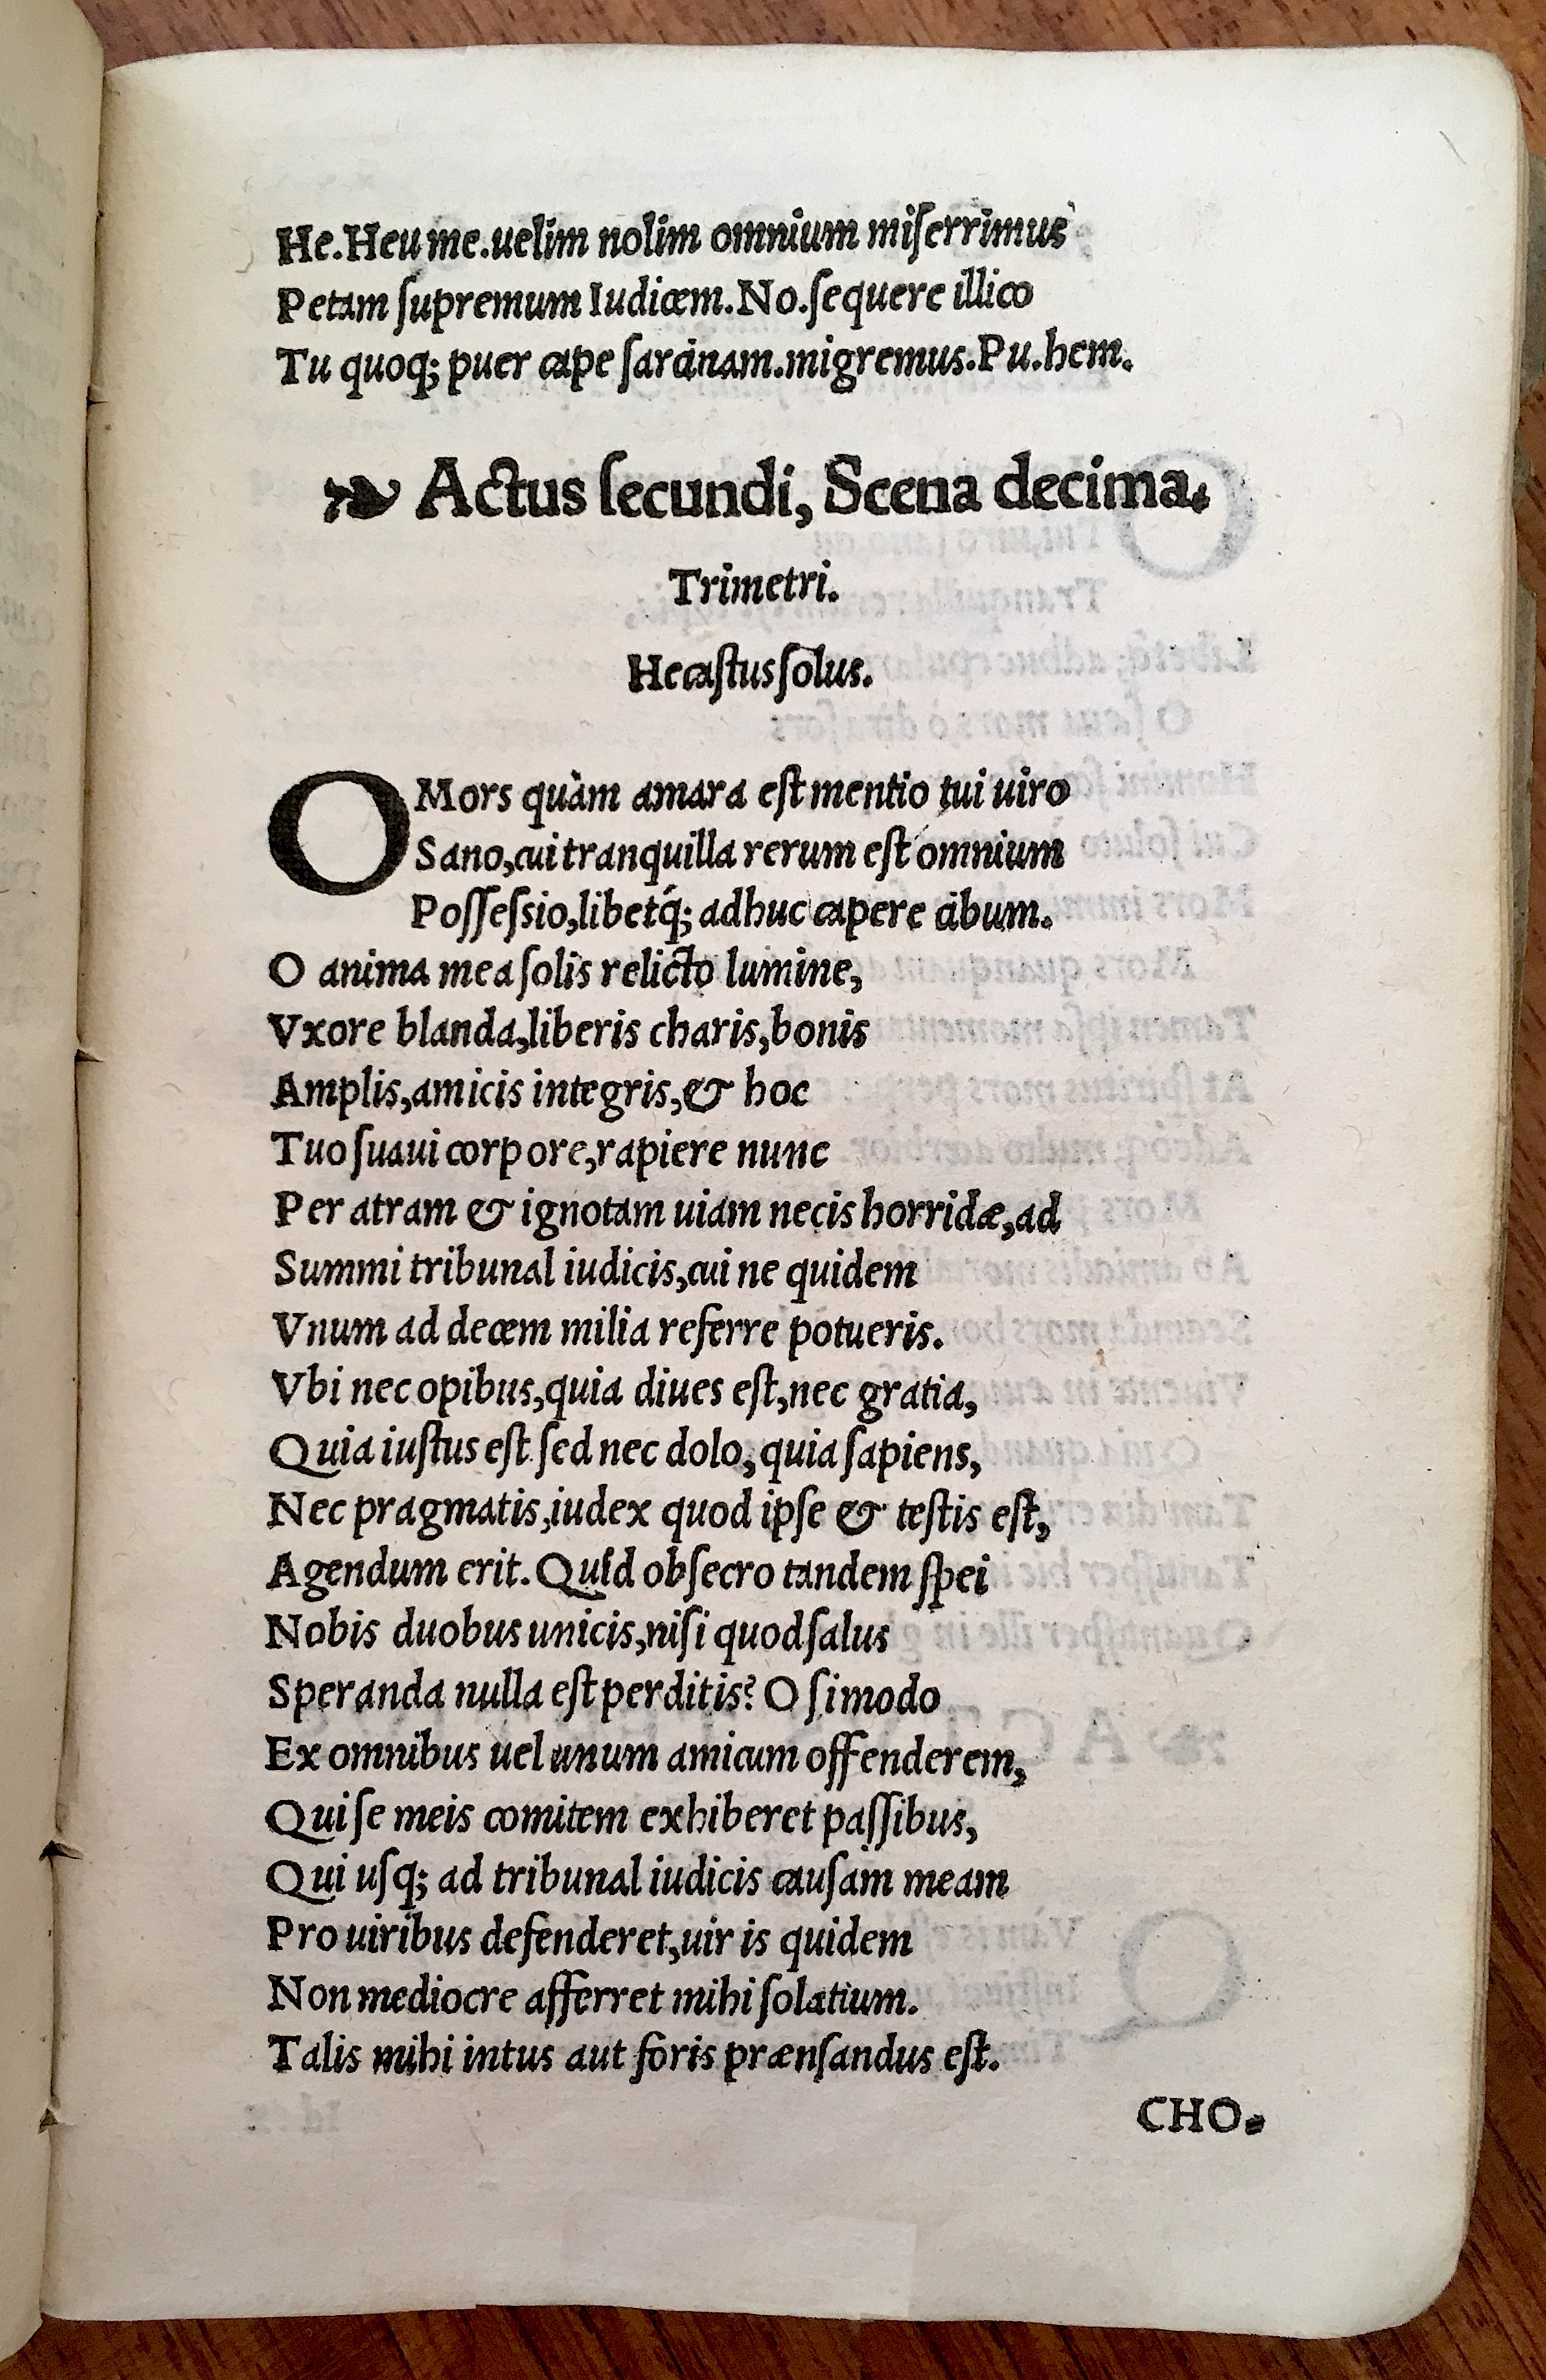 He.Heu me.uelim nolim omnium miſerrimus
Petam ſupremum Iudicem.No.ſequere illico
Tu quoq; puer cape ſarcinam.migremus.Pu.hem.
❧ Actus ſecundi, Scena decima.
Trimetri.
Hecaſtus ſolus.
O Mors quàm amara eſt mentio tui uiro
Sano,cui tranquilla rerum eſt omnium
Poſſeſsio,libetq́; adhuc capere cibum.
O anima mea ſolis relicto lumine,
Vxore blanda,liberis charis,bonis
Amplis,amicis integris,& hoc
Tuo ſuaui corpore,rapiere nunc
Per atram & ignotam uiam necis horridæ,ad
Summi tribunal iudicis,cui ne quidem
Vnum ad decem milia referre potueris.
Vbi nec opibus,quia diues eſt,nec gratia,
Quia iuſtus eſt ſed nec dolo,quia ſapiens,
Nec pragmatis,iudex quod ipſe & teſtis eſt,
Agendum erit.Quid obſecro tandem ſpei
Nobis duobus unicis,niſi quod ſalus
Speranda nulla eſt perditis? O ſi modo
Ex omnibus uel unum amicum offenderem,
Qui ſe meis comitem exhiberet paſſibus,
Qui uſq; ad tribunal iudicis cauſam meam
Pro uiribus defenderet,uir is quidem
Non mediocre afferret mihi ſolatium.
Talis mihi intus aut foris prænſandus eſt.
CHO.